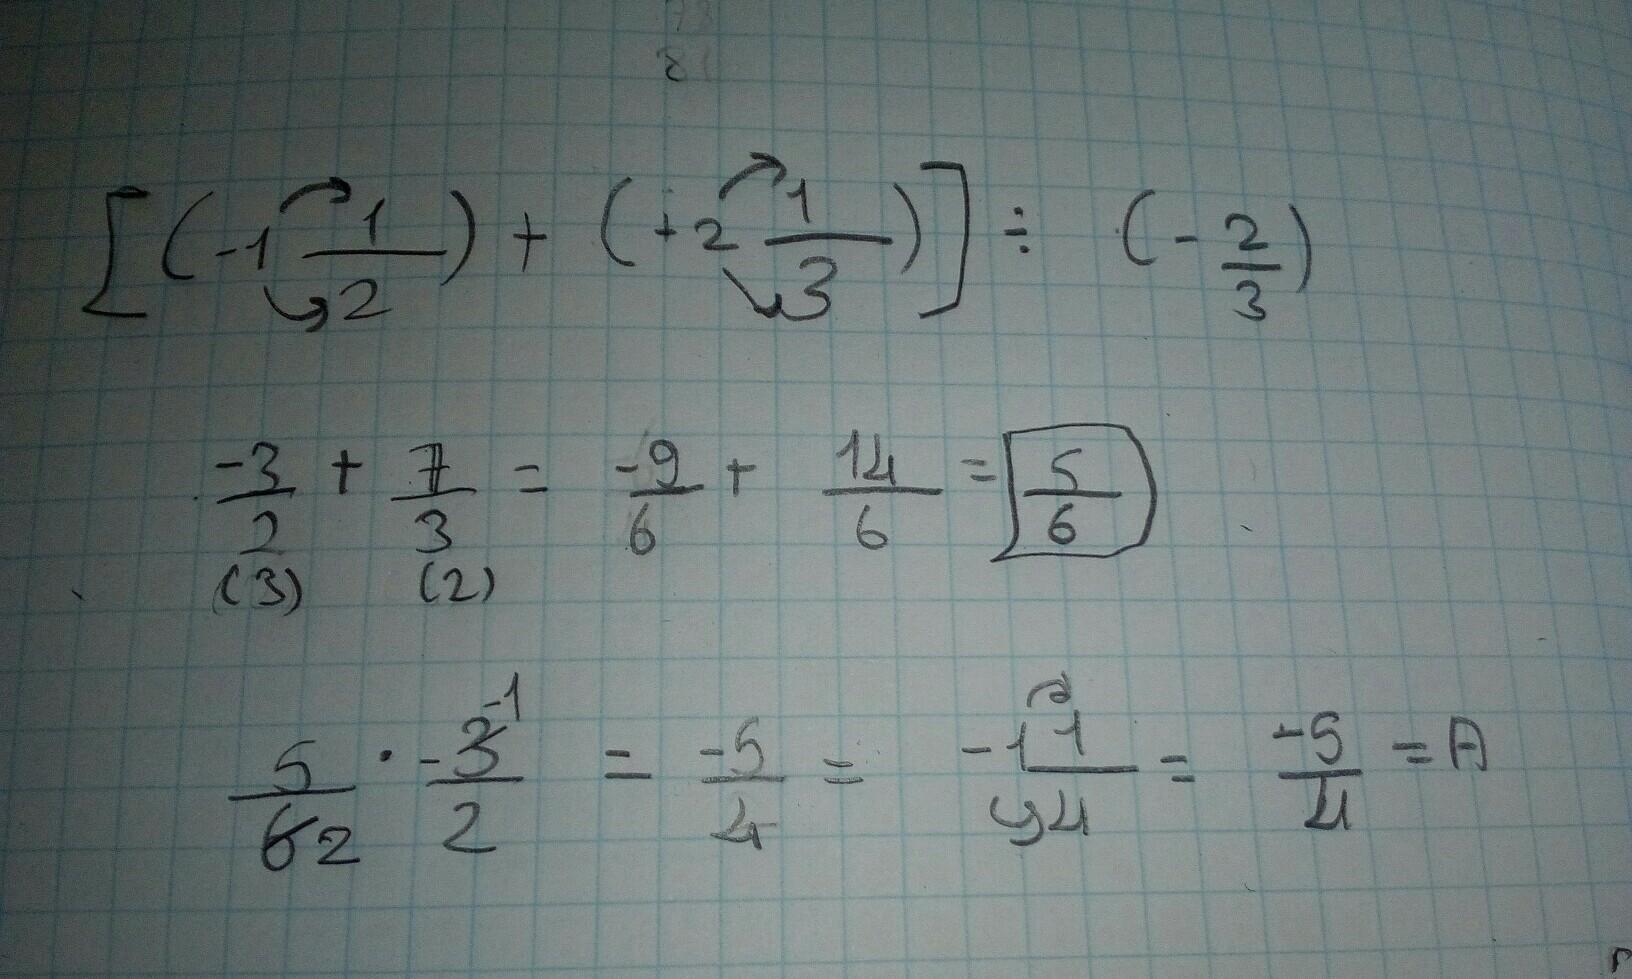 [(-1 1/2) + (+2 1/3)] ÷ (-2/3)
-3/2 + 7/3 = -9/6 + 14/6 = 5/6
(3) (2)
5/6 2 · -3 -1/2 = -5/4 = -1 1/4 = -5/4 = A